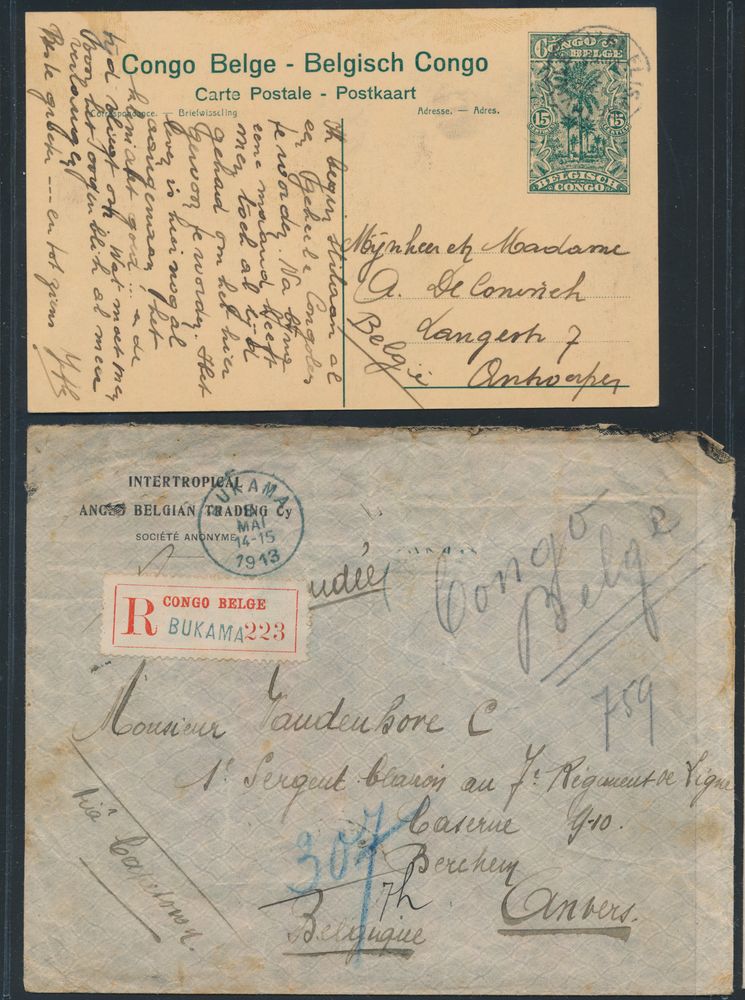 Congo Belge - Belgisch Congo
Carte Postale - Postkaart
Correspondance. — Briefwisseling
Adresse. — Adres.
CONGO BELGE
15 15
BELGISCH
CONGO
Ik begin stilaan al
een geheele Congolees
te worden. Na
eene maand heeft
men toch al tijd
gehad om het hier
gewoon te worden. Het
leven is hier nogal
aangenaam, het
klimaat goed en de
tijd vliegt om. Wat moet men
voor het oogenblik al meer
verlangen
Beste groeten en tot ziens
Mijnheer en Madame
A. De Coninck
Langestr 7
Antwerpen
België
INTERTROPICAL
ANGLO BELGIAN TRADING Cy
SOCIÉTÉ ANONYME
BUKAMA
MAI
14-15
1913
R CONGO BELGE
BUKAMA 223
Congo
Belge
759
Monsieur Vandenhove C
1r Sergent Clairon au 7e Régiment de Ligne
Caserne 9-10.
Berchem
Anvers.
Belgique
via Capetown.
307
7h